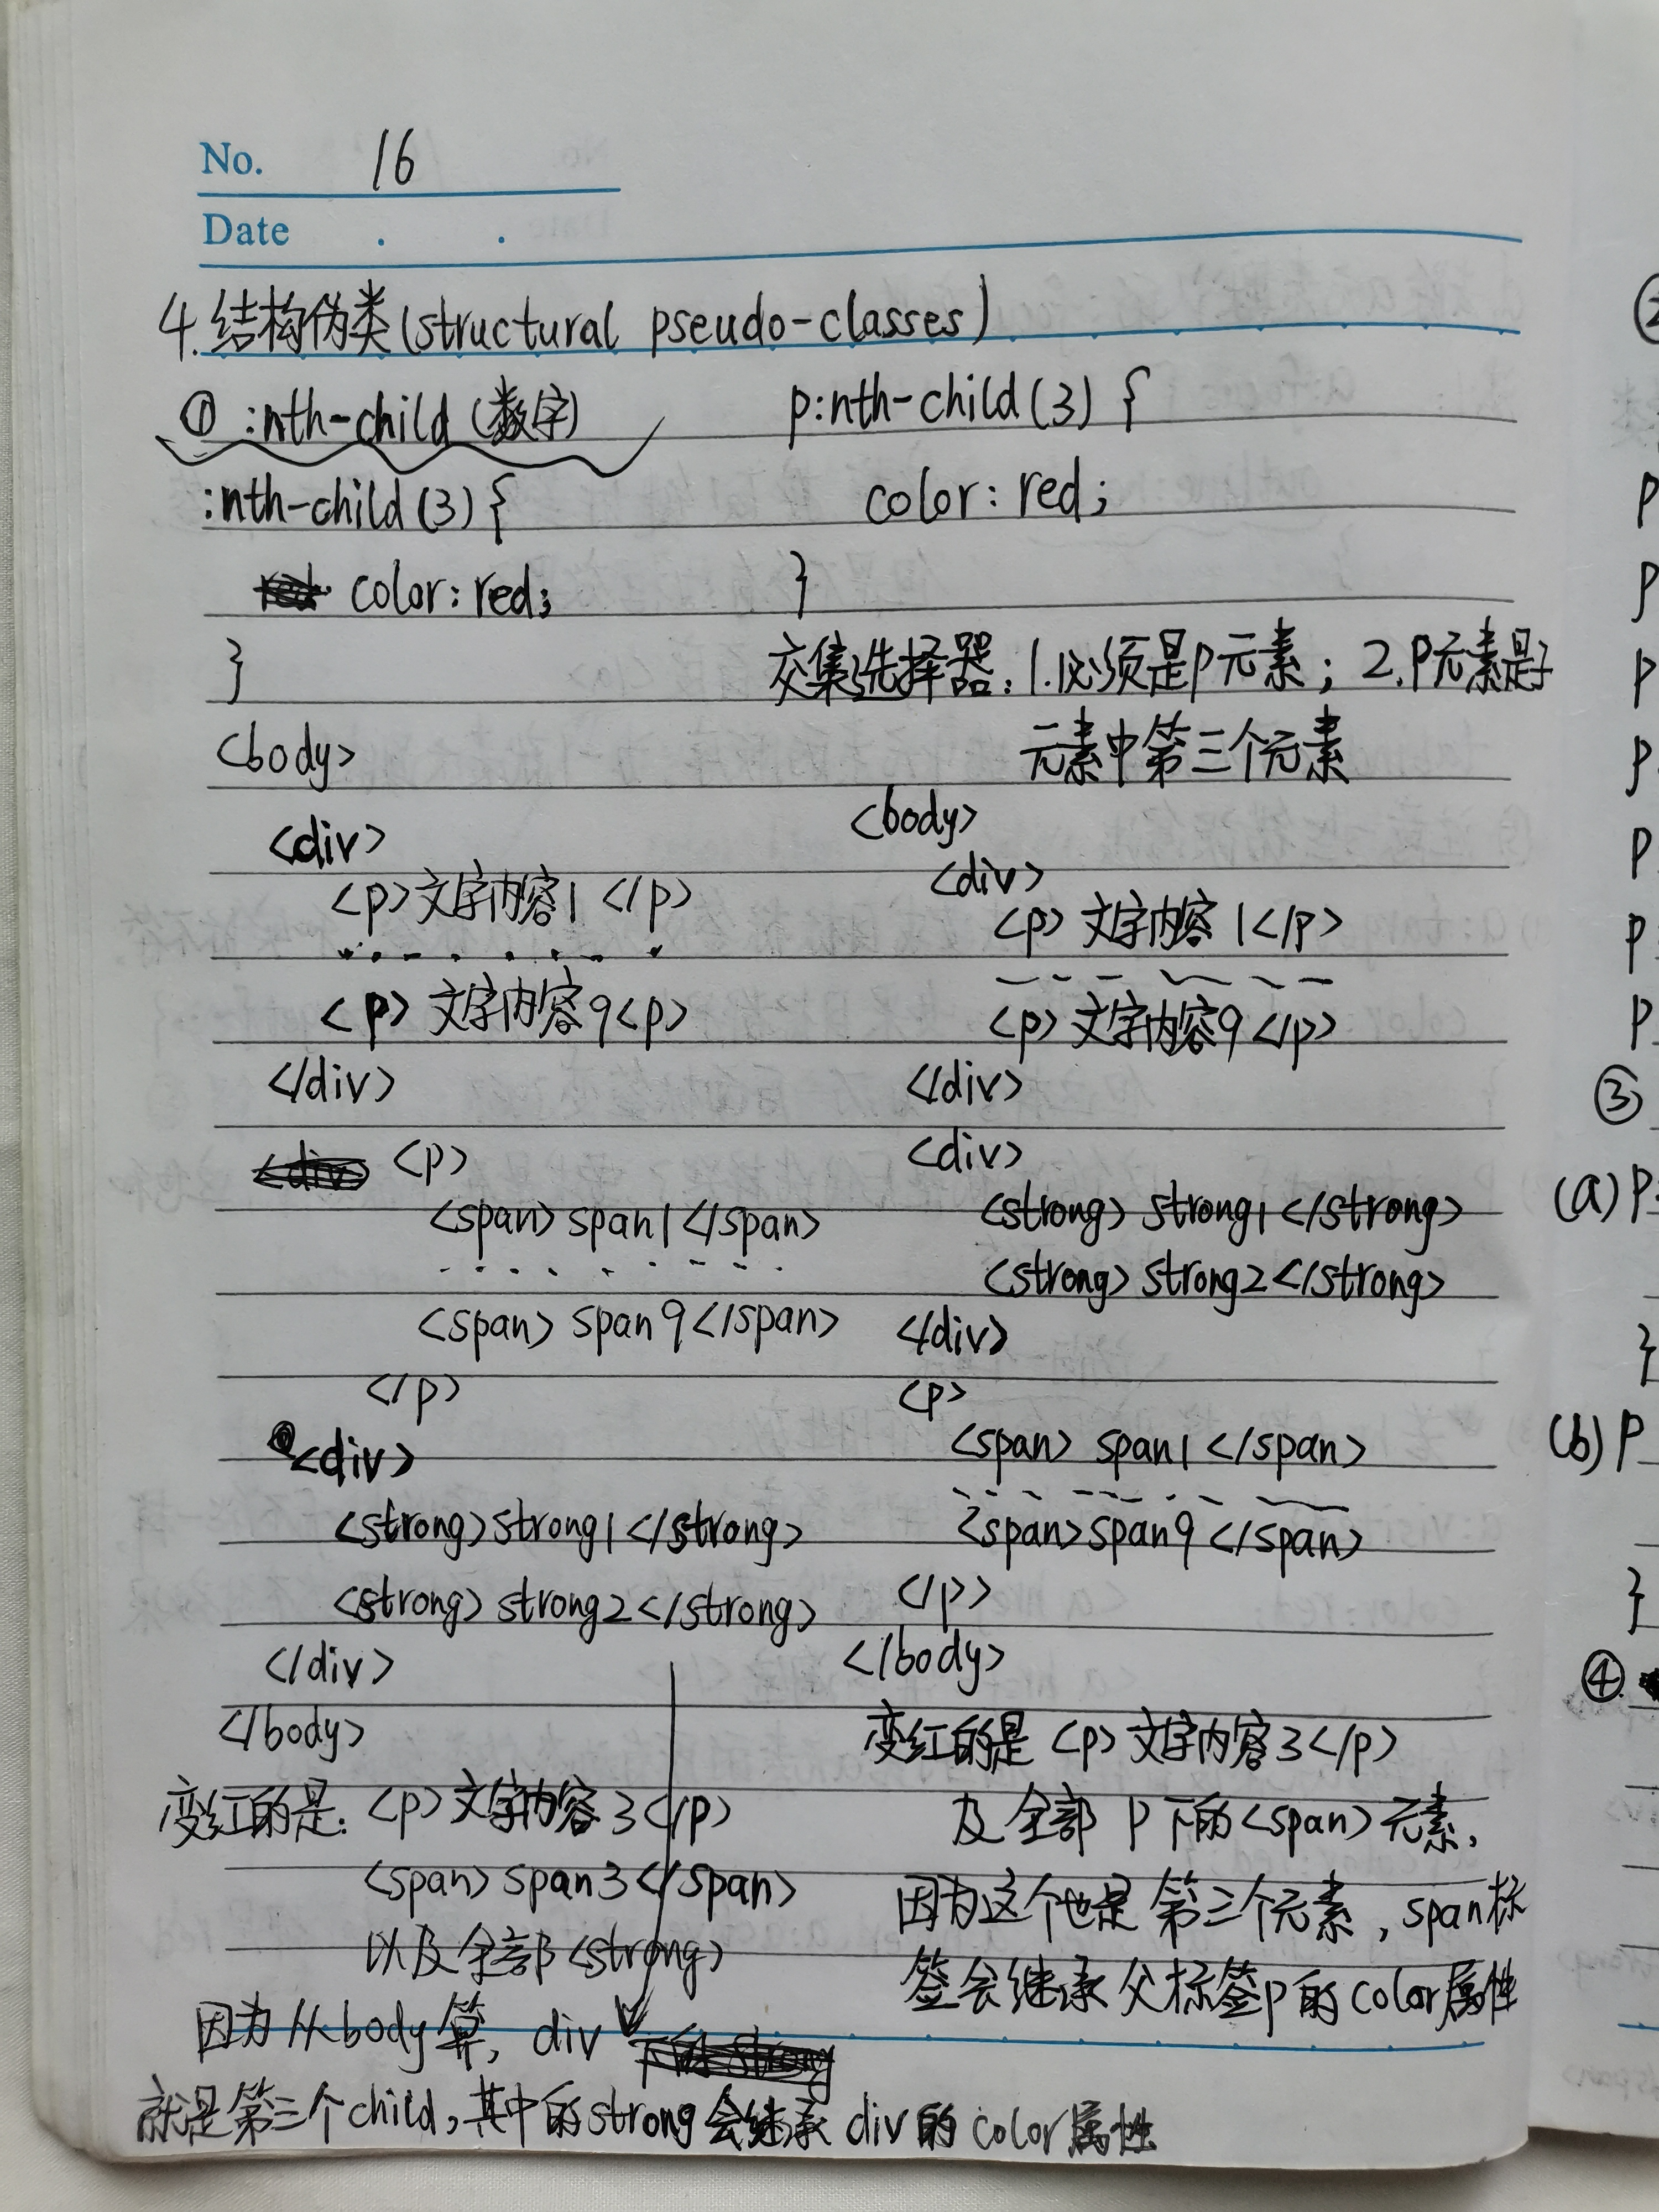 No. 16
Date . .
4.结构伪类(structural pseudo-classes)
① :nth-child(数字)
:nth-child(3){
color:red;
}
<body>
<div>
<p>文字内容1</p>
<p>文字内容9<p>
</div>
<p>
<span>span1</span>
<span>span9</span>
</p>
<div>
<strong>strong1</strong>
<strong>strong2</strong>
</div>
</body>
变红的是:<p>文字内容3</p>
<span>span3</span>
以及全部<strong>
因为从body算,div
就是第三个child,其中的strong会继承div的color属性
p:nth-child(3){
color:red;
}
交集选择器:1.必须是p元素;2.p元素是子
元素中第三个元素
<body>
<div>
<p>文字内容1</p>
<p>文字内容9</p>
</div>
<div>
<strong>strong1</strong>
<strong>strong2</strong>
</div>
<p>
<span>span1</span>
<span>span9</span>
</p>
</body>
变红的是<p>文字内容3</p>
及全部p下的<span>元素,
因为这个也是第三个元素,span标
签会继承父标签p的color属性
②
p
p
p
p
p
p
p
③
(a)p:
}
(b)p
}
④